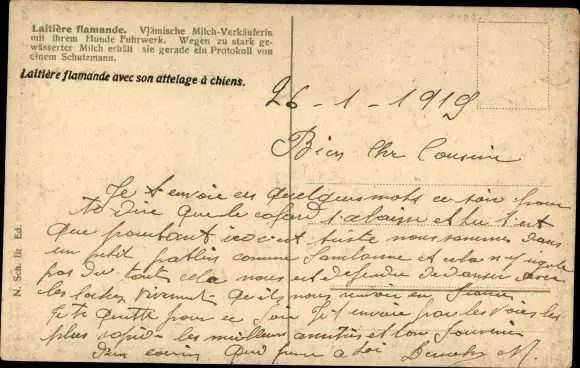 Laitière flamande. Vlämische Milch-Verkäuferin
mit ihrem Hunde Fuhrwerk. Wegen zu stark ge-
wässerter Milch erhält sie gerade ein Protokoll von
einem Schutzmann.
Laitière flamande avec son attelage à chiens.
N. Sch. Br. Ed.
26-1-1919
Bien Cher Cousin
Je t envoie ces quelques mots ce soir pour
te dire que le cafard
que pourtant ici c'est triste nous sommes dans
un petit patlin comme et cela n'y
pas du tout cela nous est défendu de danser avec
les vivement qu'ils nous en France
Je te quitte pour ce soir Je t'envoie par les voies les
plus rapides les meilleurs amitiés et bon souvenir
d'un cousin qui pense a toi